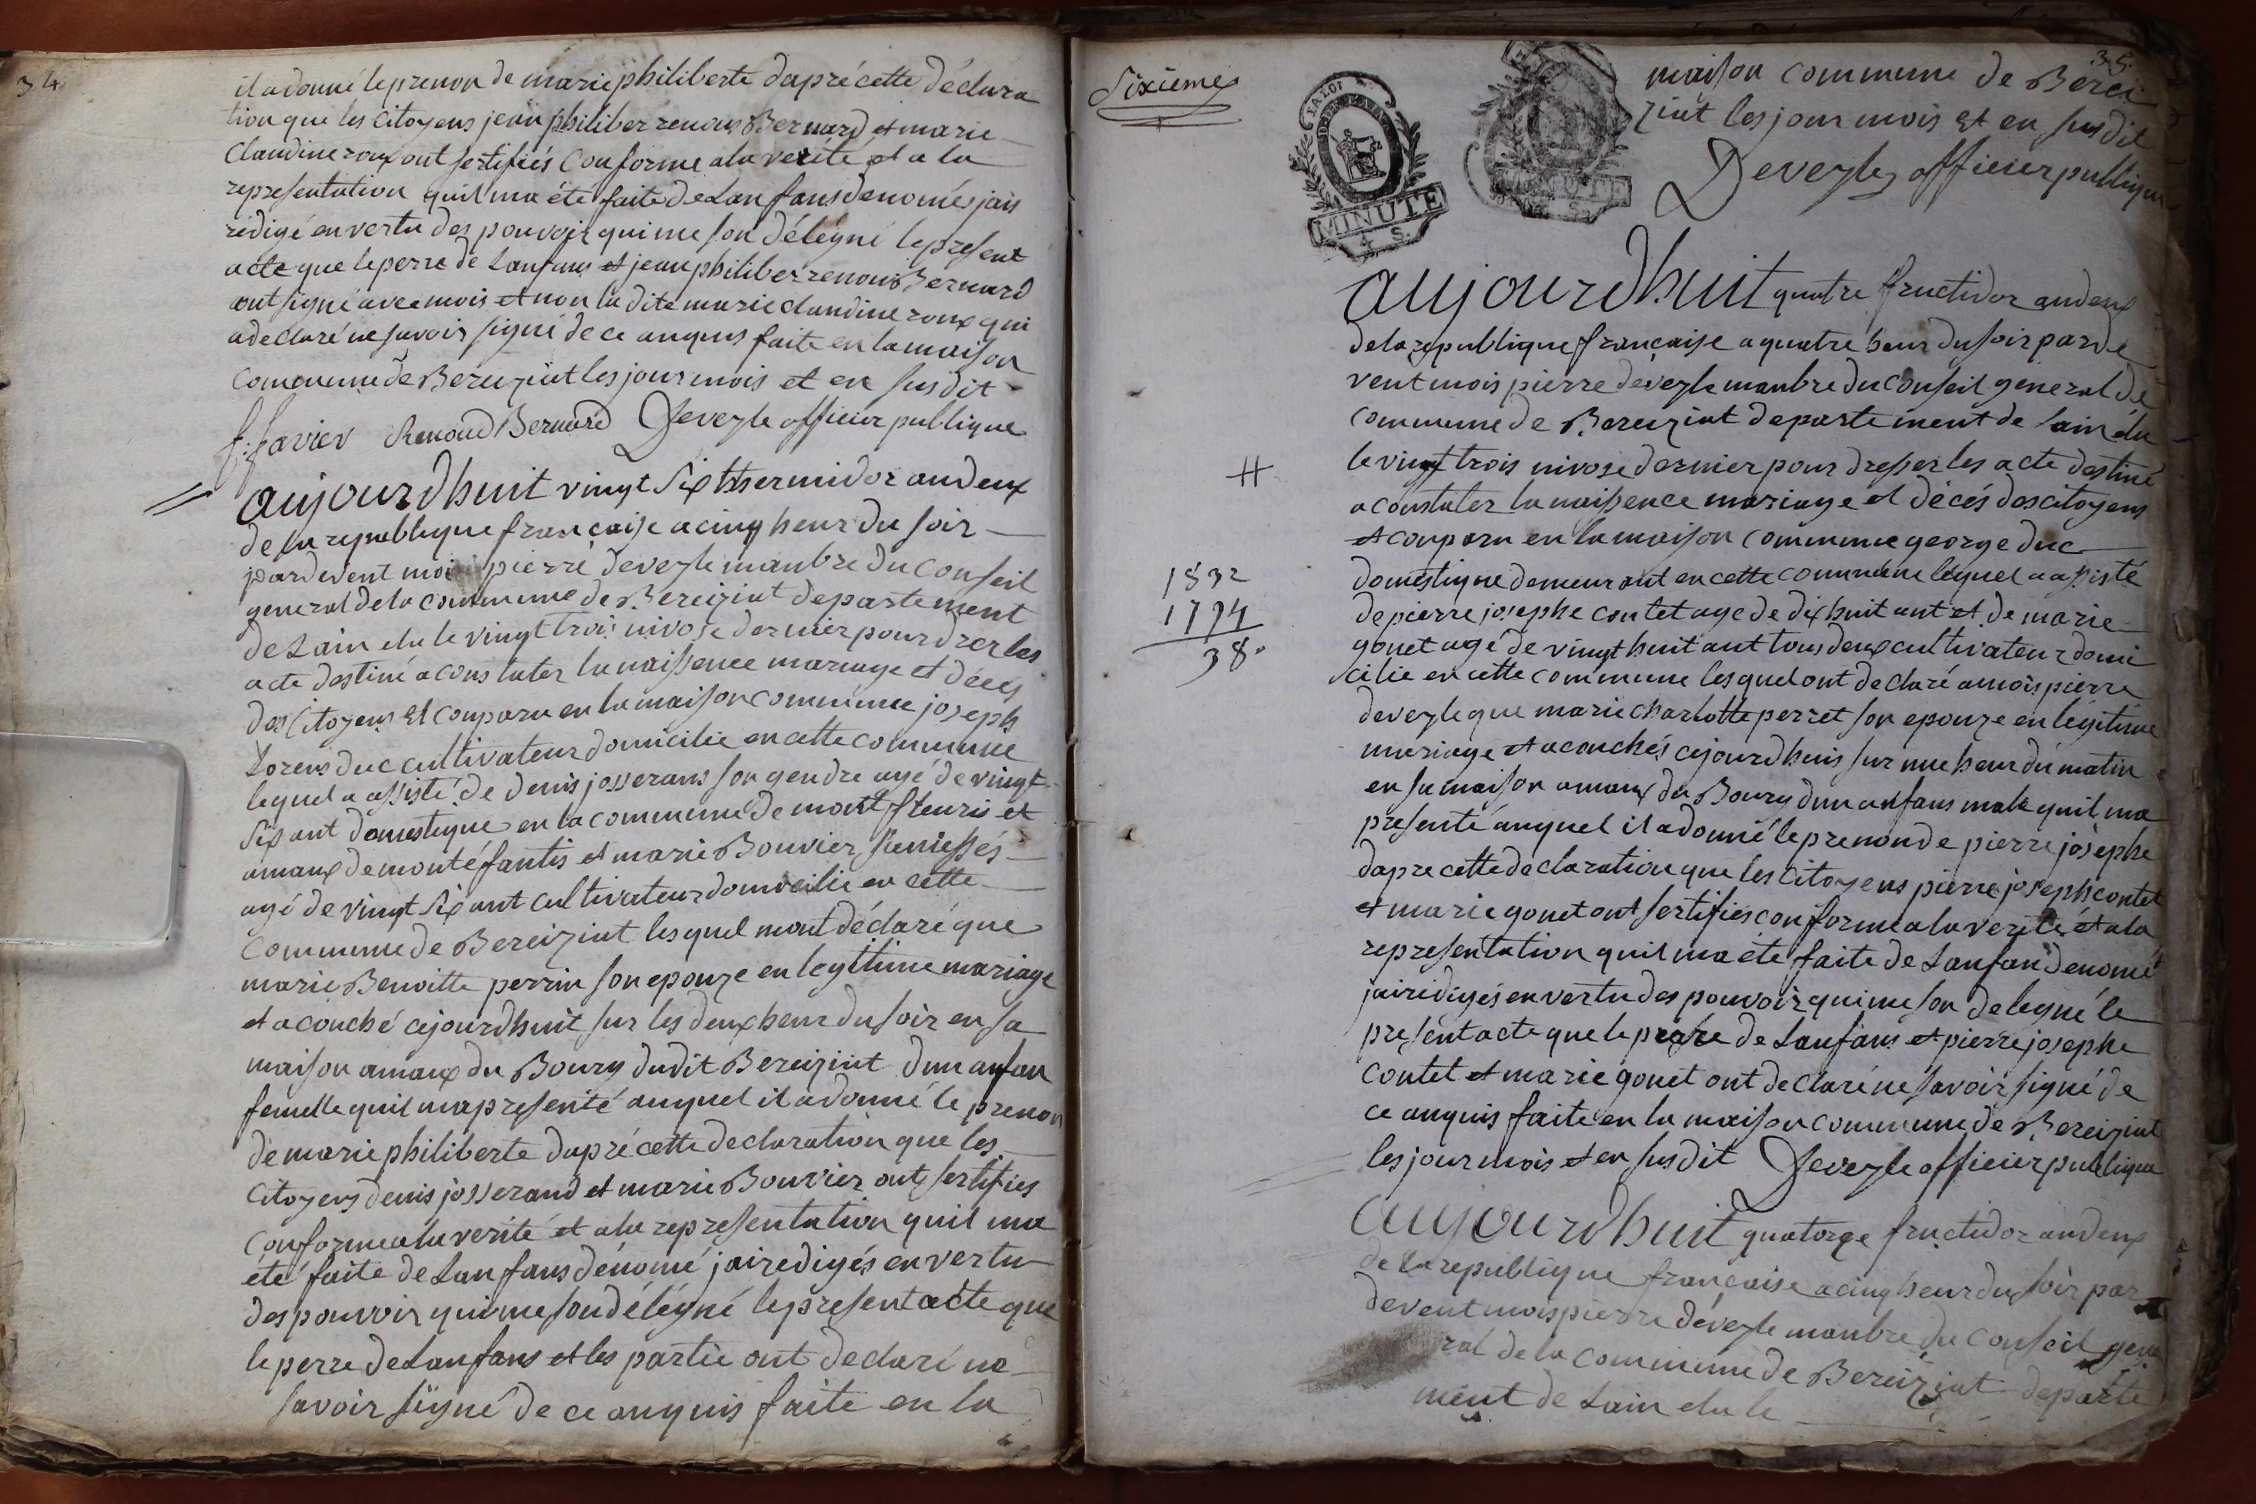 34
il a donné le prenon de marie philiberte daprécette déclara
tion que les citoyens jean philiber renous Bernard et marie
Claudine roux ont sertifiés conforme a la verité et a la
representation quil ma éte faite de Lanfans denomés jais
rédigé en vertu des pouvoir qui me son délégué le present
acte que le perre de Lanfans et jean philiber renous Bernard
ont signé avec mois et non la dite marie claudine roux qui
a declaré ne savoir signé de ce anquis faite en la maison
commune de Bereiziat les jour mois et en susdit
f. favier Renoud Bernard Deveyle officier publique
aujourdhuit vingt six thermidor an deux
de la republique francaise a cinq heur du soir
pardevent moi pierre deveyle manbre du conseil
general de la commune de Bereiziat departement
de Lain elu le vingt trois nivose dernier pour drer les
acte destiné a constater la naissence mariage et décés
des Citoyens et conparu en la maison commune joseph
Lorens duc cultivateur domicilie en cette commune
lequel a assisté de denis josserans son gendre agé de vingt
six ant domestique en la commune de mont fleuris et
amaux de montéfantis et marie Bouvier
agé de vingt six ant cultivateur domicilie en cette
commune de Bereiziat lesquel mont déclaré que
marie Benoitte perrin son epouze en legitime mariage
et a couché cejourdhuit sur les deux heur du soir en sa
maison amaux du Bourg dudit Bereiziat dun anfan
femelle quil ma presenté auquel il a donné le prenon
de marie philiberte dapré cette declaration que les
Citoyens denis josserand et marie Bouvier ont sertifies
conforme a la verité et a la representation quil ma
eté faite de Lanfans dénomé jai redigés en vertu
des pouvoir qui me son délégué le present acte que
le perre de Lanfans et les partie ont declaré ne
savoir signé de ce anquis faite en la
35.
Sixieme
LA LOI
MINUTE
4 S.
MINUTE
maison commune de Berei
ziat les jour mois et en susdit
Deveyle officier publique
aujourdhuit quatre fructidor an deux
de la republique francaise a quatre heur du soir parde
vent mois pierre deveyle manbre du conseil general de
commune de Bereiziat departement de Lain elu
le vingt trois nivose dernier pour dresser les acte destiné
a constater la naissence mariage et décés des citoyens
et conparu en la maison commune george duc
domestique demeurant en cette commune lequel a assisté
de pierre josephe contet age de dix huit ant et de marie
gonet agé de vingt huit ant tous deux cultivateur domi
cilie en cette commune lesquel ont declaré a mois pierre
deveyle que marie charlotte perret son epouze en legitime
mariage et a couchés cejourdhuis sur une heur du matin
en sa maison amaux du Bourg dun anfans male quil ma
presenté auquel il a donné le prenon de pierre josephe
dapre cette declaration que les citoyens pierre joseph contet
et marie gonet ont sertifiés conforme a la verité et a la
representation quil ma eté faite de Lanfan denomé
jai redigés en vertu des pouvoir qui me son delegué le
present acte que le perre de Lanfans et pierre josephe
contet et marie gonet ont declaré ne savoir signé de
ce anquis faite en la maison commune de Bereiziat
les jour mois et en susdit Deveyle officier publique
aujourdhuit quatorze fructidor an deux
de la republique francaise a cinq heur du soir par
devent mois pierre déveyle manbre du conseil gene
ral de la commune de Bereiziat departe
ment de Lain elu le
1832
1794
38.